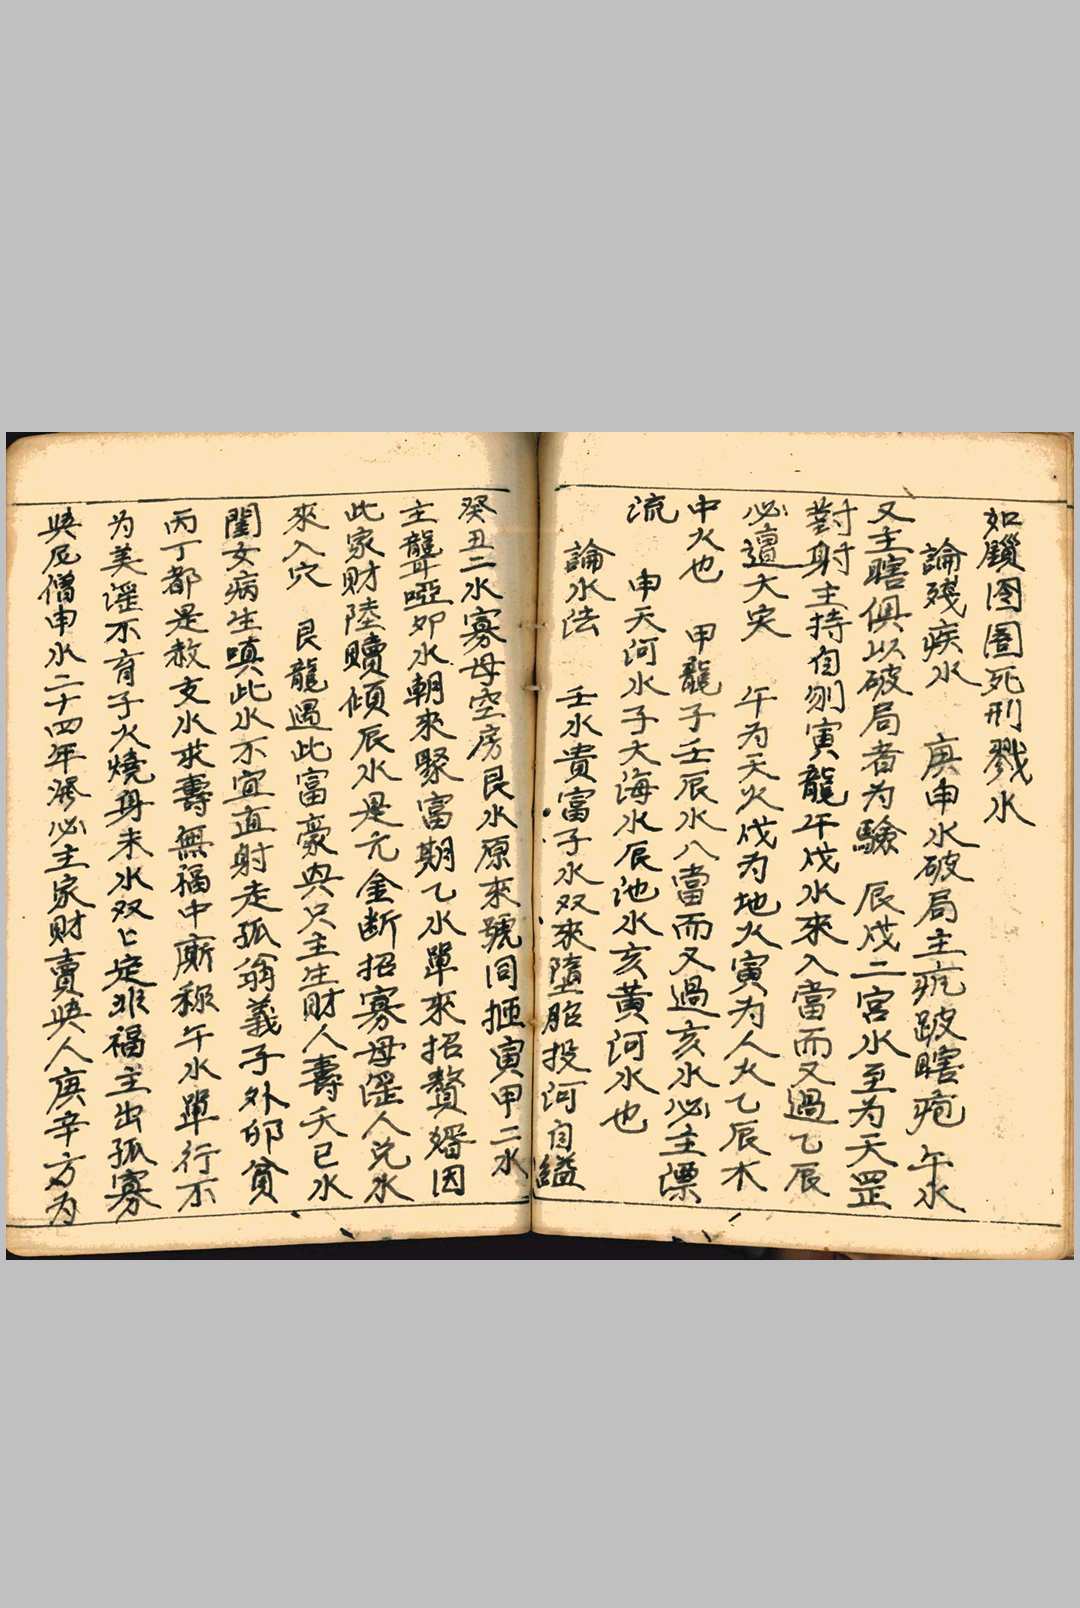 如鎖囹圄死刑戮水
論殘疾水　庚申水破局主疧跛瞎疱　午水
又主瞎俱以破局者为驗　辰戌二宮水至为天罡
對射主持自刎寅龍午戌水來入當而又過乙辰
必遭大灾　午为天火戌为地火寅为人火乙辰木
中火也　甲龍子壬辰水八當而又過亥水必主漂
流　申天河水子大海水辰池水亥黄河水也
論水法　壬水貴富子水双來墮胎投河自縊
癸丑二水寡母空房艮水原來號同摇寅甲二水
主聾啞卯水朝來聚富期乙水單來招贅婿因
此家財陸賣傾辰水是元金断招寡母淫人兑水
來入穴　艮龍遇此富豪與只主生財人壽夭巳水
閨女病生嗔此水不宜直射走孤翁義子外郎貧
丙丁都是赦文水求壽無福中厮称午水單行不
为美淫不育子火燒身未水双匕定非福主出孤寡
與尼僧申水二十四年凈必主家財賣與人庚辛方为